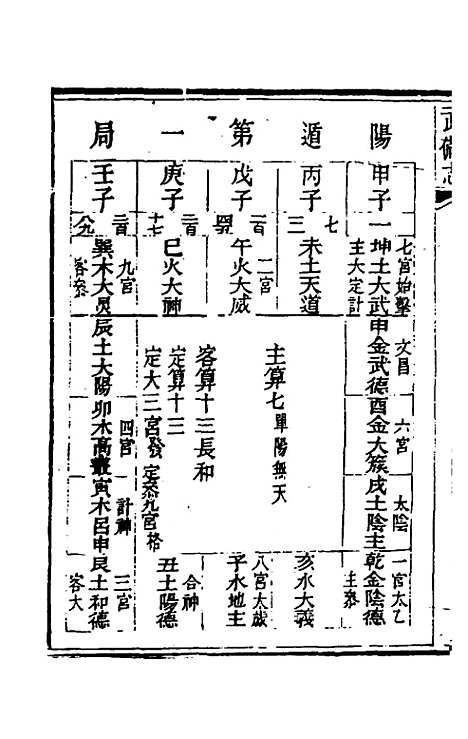 武備志
陽遁第一局
甲子 一
丙子 七三
戊子 二百
庚子 二百 十七
壬子 二百 八九
七宮始擊 文昌 六宮 太陰 一宮太乙
坤土大武申金武德酉金大簇戌土陰主乾金陰德
主大定計 主參
未土天道
亥水大義
二宮
午火大威
主算七單陽無天
八宮太歲
子水地主
巳火大神
客算十三長和
定算十三
定大三宮發定參九宮格
合神
丑土陽德
九宮 四宮 計神 三宮
巽木大炅辰土大陽卯木高叢寅木呂申艮土和德
客參 客大